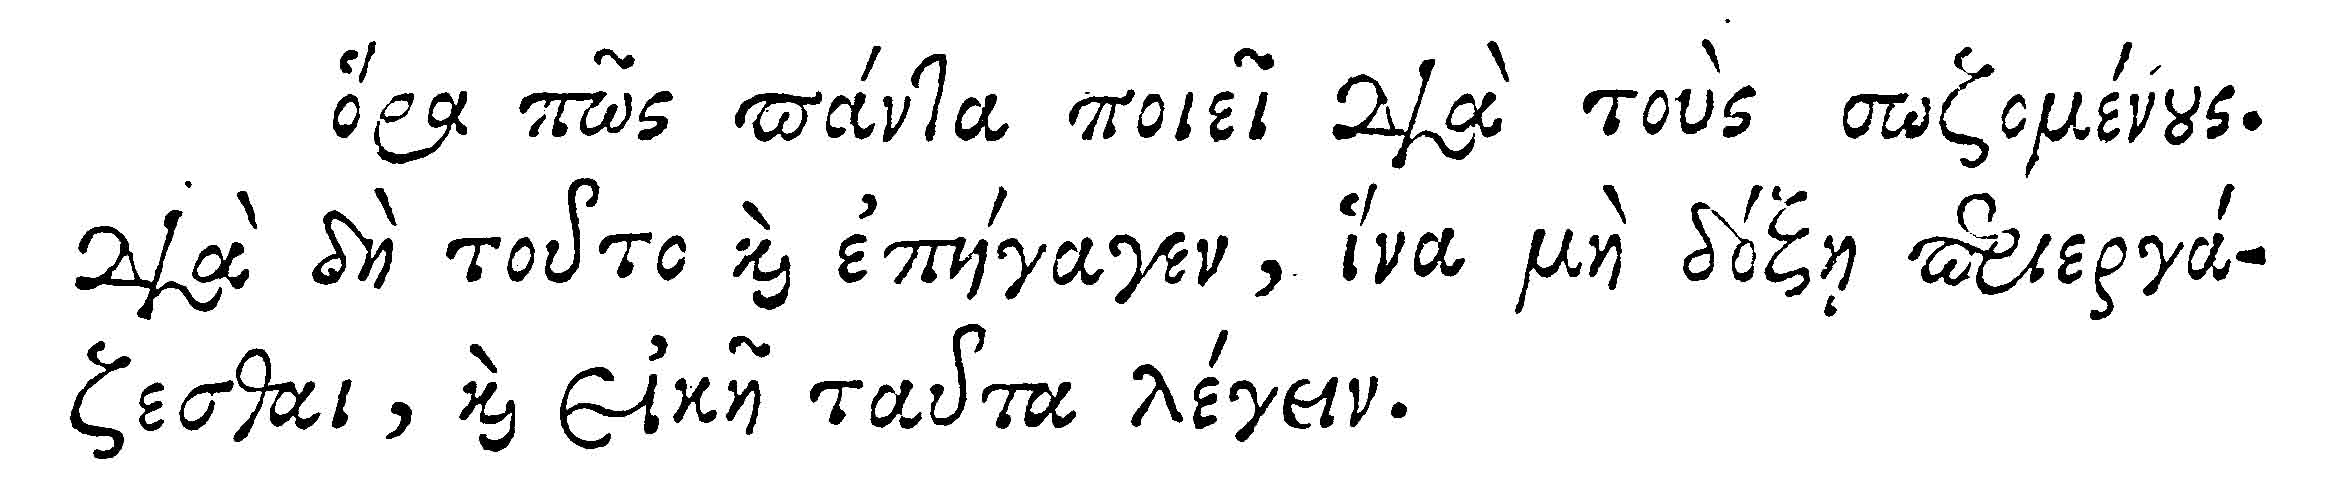 ὅρα πῶς πάντα ποιεῖ διὰ τοὺς σωζομένους.
διὰ δὴ τοῦτο καὶ ἐπήγαγεν, ἵνα μὴ δόξῃ περιεργά-
ζεσθαι, καὶ εἰκῆ ταῦτα λέγειν.